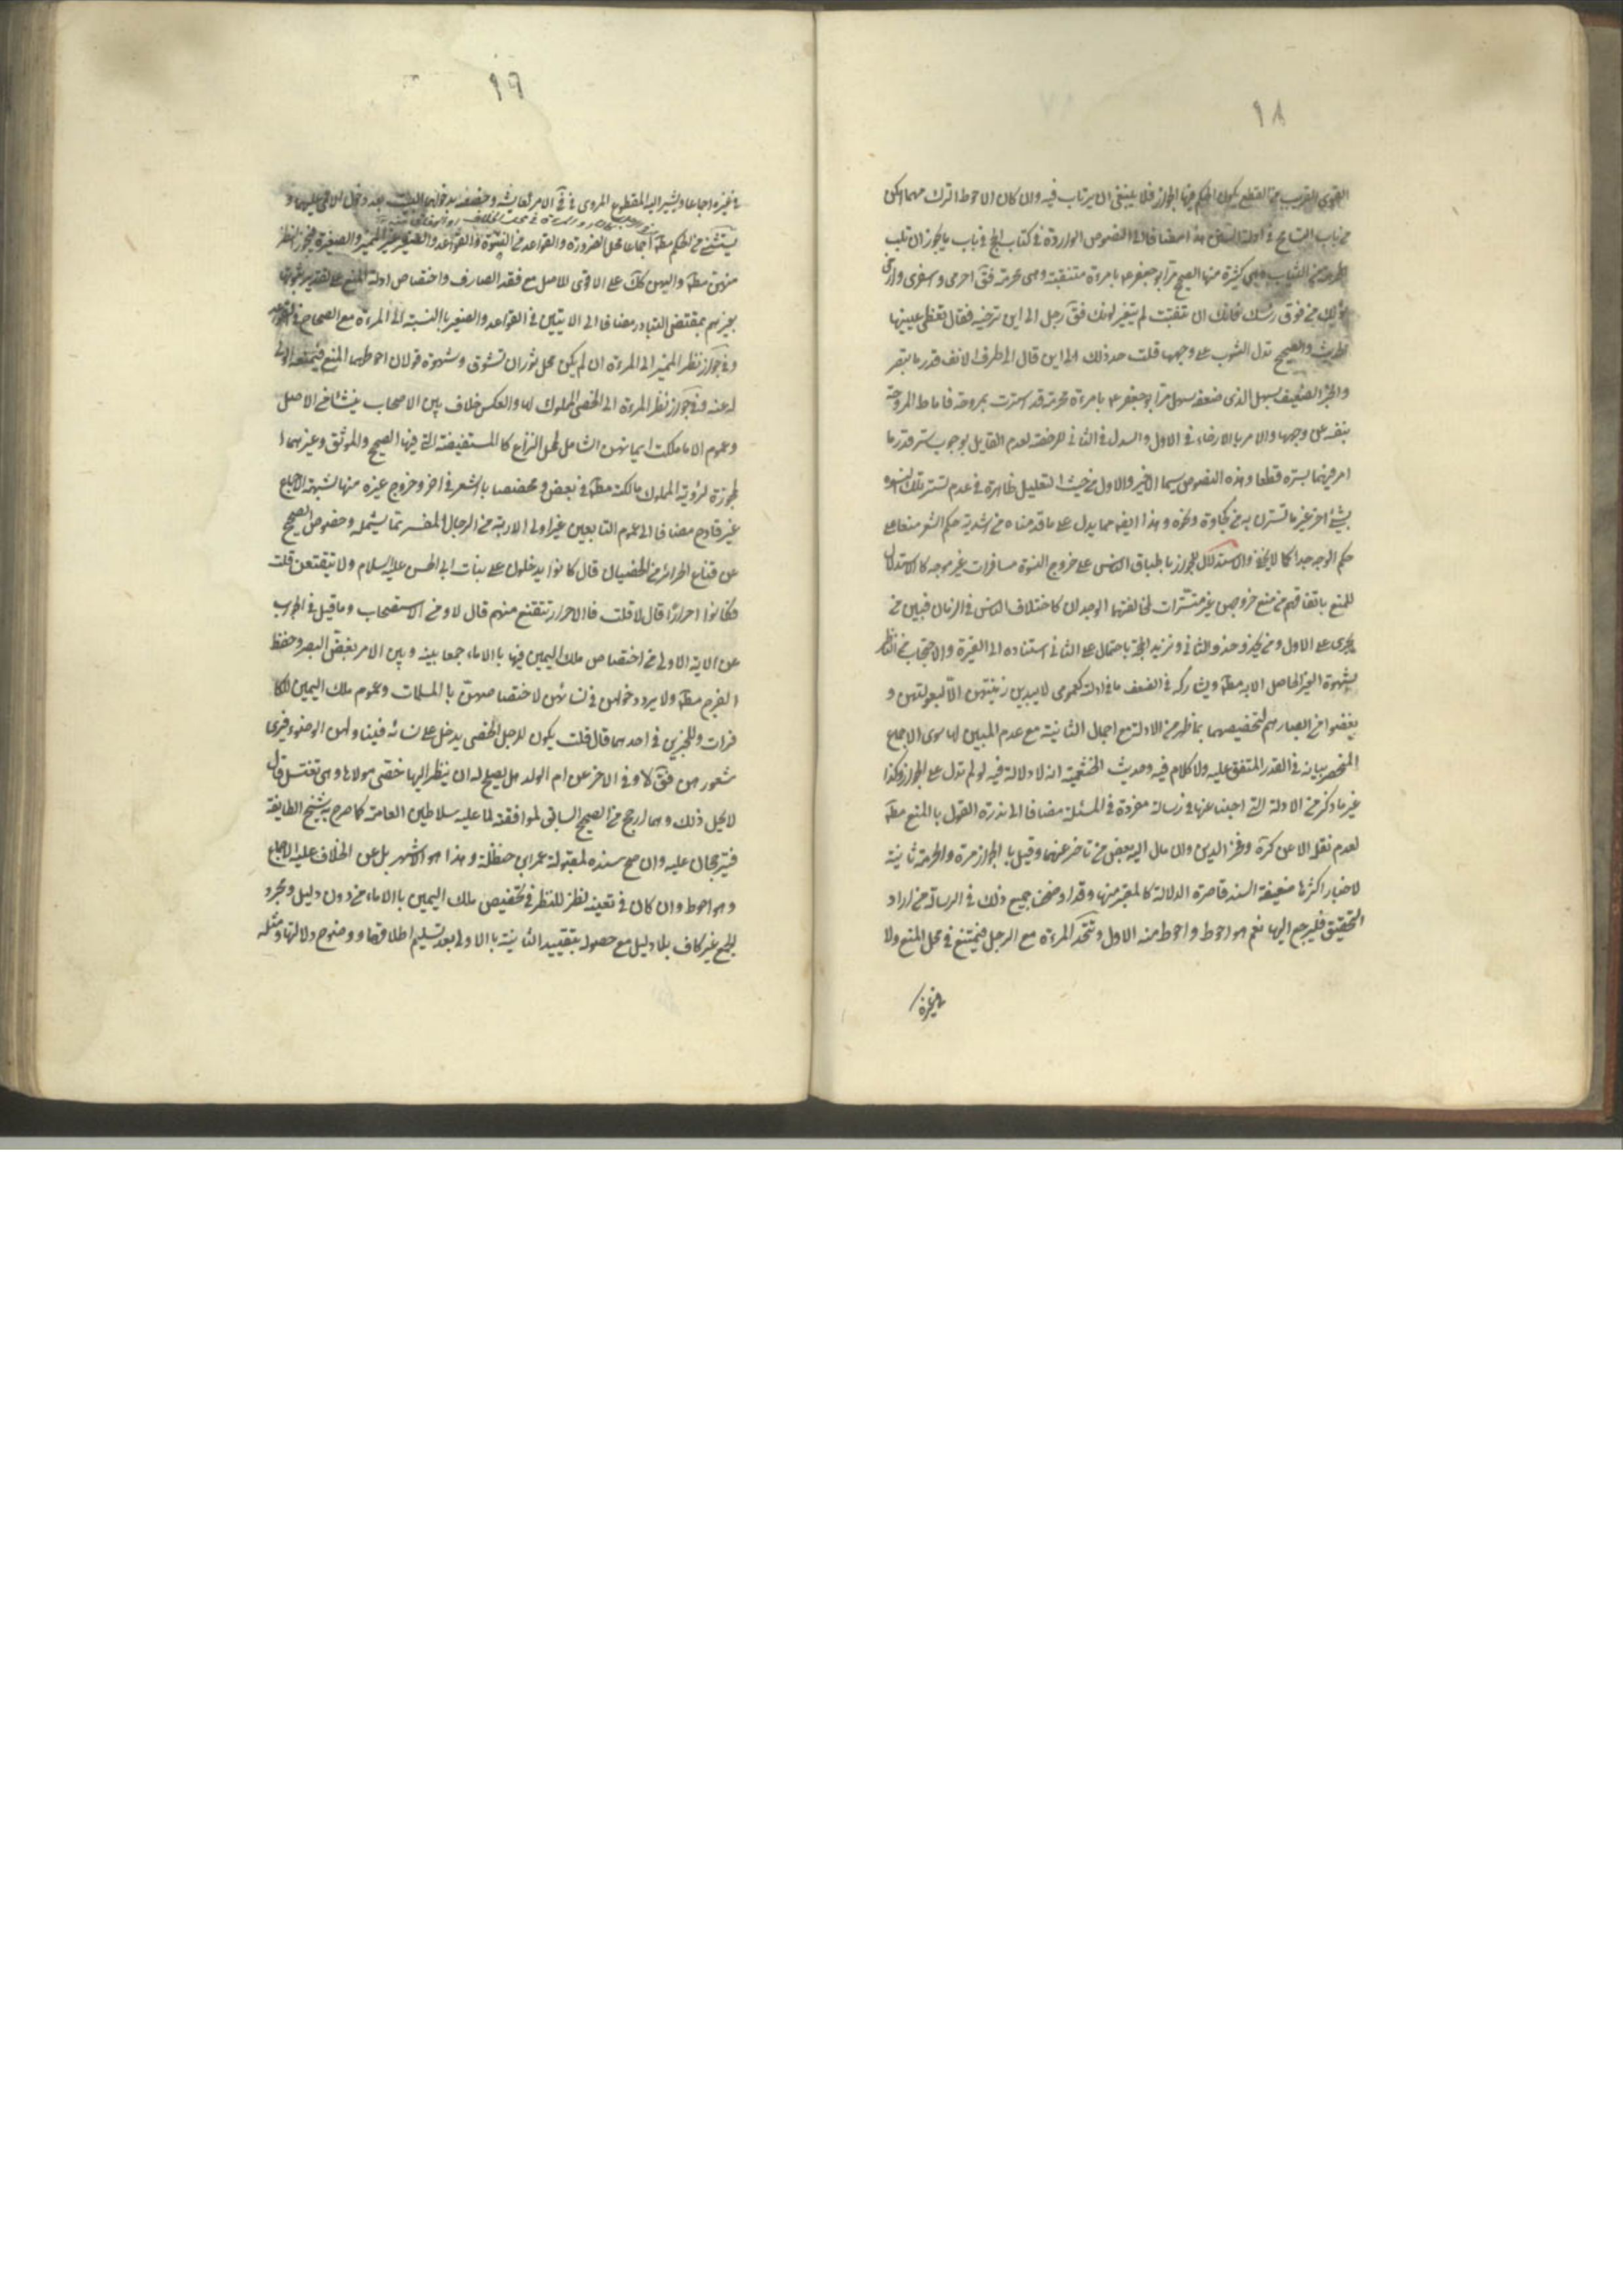 ١٨
القوى القريب من القطع يكون الحكم فيها الجواز فلا ينبغى ان يرتاب فيه وان كان الاحوط الترك مهما امكن
من باب التسامح فى ادلة السنن هذا مضافا الى النصوص الواردة فى كتاب الحج فى باب ما يجوز ان تلبسه
المحرمة من الثياب وهى كثيرة منها الصحيح مر ابو جعفر ع بامرءة متنقبة وهى محرمة فق احرمى واسفرى وارخى
ثوبك من فوق رئسك فانك ان تنقبت لم يتغير لونك فق رجل الى اين ترخيه فقال تغطى عينيها
الحديث والصحيح تدل الثوب على وجهها قلت حد ذلك الى اين قال الى طرف الانف قدر ما تبصر
والخبر الضعيف بسهل الذى ضعفه سهل مر ابو جعفر ع بامرءة محرمة قد استترت بمروحة فاماط المروحة
بنفسه عن وجهها والامر بالارخاء فى الاول والسدل فى الثانى للرخصة لعدم القايل بوجوب ستر قدر ما
امر فيهما بستره قطعا وهذه النصوص سيما الاخير والاول من حيث التعليل ظاهرة فى عدم تستر تلك النسوة
بشئ اخر غير ما تسترن به من كجاوة ونحوه وهذا ايضا مما يدل على ما قدمناه من اشدية حكم الشعر منعا على
حكم الوجه جدا كما لا يخفى والاستدلال للجواز باطباق الناس على خروج النسوة مسافرات غير موجه كالاستدلال
للمنع باتفاقهم من منع خروجهن غير مستترات لمخالفتهما الوجدان كاختلاف الناس فى الزمان فبين من
يجرى على الاول ومن يحذو حذو الثانى ونزيد الحجة باحتمال على الثانى استناده الى الغيرة والاحتجاب من النظر
بشهوة الغير الحاصل الا به مطه ويشاركه فى الضعف ما فى ادلة كعمومى لا يبدين زينتهن الا لبعولتهن و
يغضوا من ابصارهم لتخصيصهما بما ظهر من الادلة مع اجمال الثانية مع عدم المبين لها سوى الاجماع
المنحصر بيانه فى القدر المتفق عليه ولا كلام فيه وحديث الخثعمية انه لا دلالة فيه لو لم تدل على الجواز وكذا
غير ما ذكر من الادلة التى اجبنا عنها فى رسالة مفردة فى المسئلة مضافا الى ندرة القول بالمنع مطه
لعدم نقله الا عن كرة وفخر الدين وان مال اليه بعض من تاخر عنهما وقيل بالجواز مرة والحرمة ثانية
لاخبار اكثرها ضعيفة السند قاصرة الدلالة كالمعتبر منها وقد اوضحنا جميع ذلك فى الرسالة من اراد
التحقيق فليرجع اليها نعم هو احوط واحوط منه الاول وتتحد المرءة مع الرجل فيمتنع فى محل المنع ولا
فى غيره
١٩
فى غيره اجماعا ويشير اليه المقطوع المروى فى فى الامر لعايشة وحفصة بدخولهما البيت عند دخول الاعمى عليهما و
يستثنى من الحكم مطه اجماعا محل الضرورة والقواعد من النسوة والقواعد والصغير غير المميز والصغيرة فيجوز النظر
منهن مطه واليهن كك على الاقوى للاصل مع فقد الصارف واختصاص ادلة المنع على تقدير ثبوتها
بغيرهم بمقتضى التبادر مضافا الى الايتين فى القواعد والصغير بالنسبة الى المرءة مع الصحاح فى القواعد
وفى جواز نظر المميز الى المرءة ان لم يكن محل ثوران تشوق وشهوة قولان احوطهما المنع فيمنعه الولى
له عنه وفى جواز نظر المرءة الى الخصى المملوك لها والعكس خلاف بين الاصحاب ينشا من الاصل
وعموم الا ما ملكت ايمانهن الشامل لمحل النزاع كالمستفيضة التى فيها الصحيح والموثق وغيرهما ا
لمجوزة لرؤية المملوك مالكته مطه فى بعض ومختصا بالشعر فى اخر وخروج غيره منها لشبهة الاجماع
غير قادح مضافا الى عموم التابعين غير اولى الاربة من الرجال المفسر بما يشمله وخصوص الصحيح
عن قناع الحرائر من الخصيان قال كانوا يدخلون على بنات ابى الحسن عليه السلام ولا يتقنعن قلت
فكانوا احرارا قال لا قلت فالاحرار تتقنع منهم قال لا ومن الاستصحاب وما قيل فى الجواب
عن الاية الاولى من اختصاص ملك اليمين فيها بالاماء جمعا بينه وبين الامر بغض البصر وحفظ
الفرج مطه ولا يرد دخولهن فى نسائهن لاختصاصهن بالمسلمات وعموم ملك اليمين للكا
فرات وللخبرين فى احدهما قال قلت يكون للرجل الخصى يدخل على نسائه فيناولهن الوضوء فيرى
شعورهن فق لا وفى الاخر عن ام الولد هل يصلح له ان ينظر اليها خصى مولاها وهى تغتسل قال
لا يحل ذلك وهما ارجح من الصحيح السابق لموافقته لما عليه سلاطين العامة كما صرح به شيخ الطايفة
فيترجحان عليه وان صح سنده لمقبولة عمر ابن حنظلة وهذا هو الاشهر بل عن الخلاف عليه الاجماع
وهو احوط وان كان فى تعينه نظر للنظر فى تخصيص ملك اليمين بالاماء من دون دليل ومجرد
الجمع غير كاف بلا دليل مع حصوله بتقييد الثانية بالاولى بعد تسليم اطلاقها ووضوح دلالتها ومثله